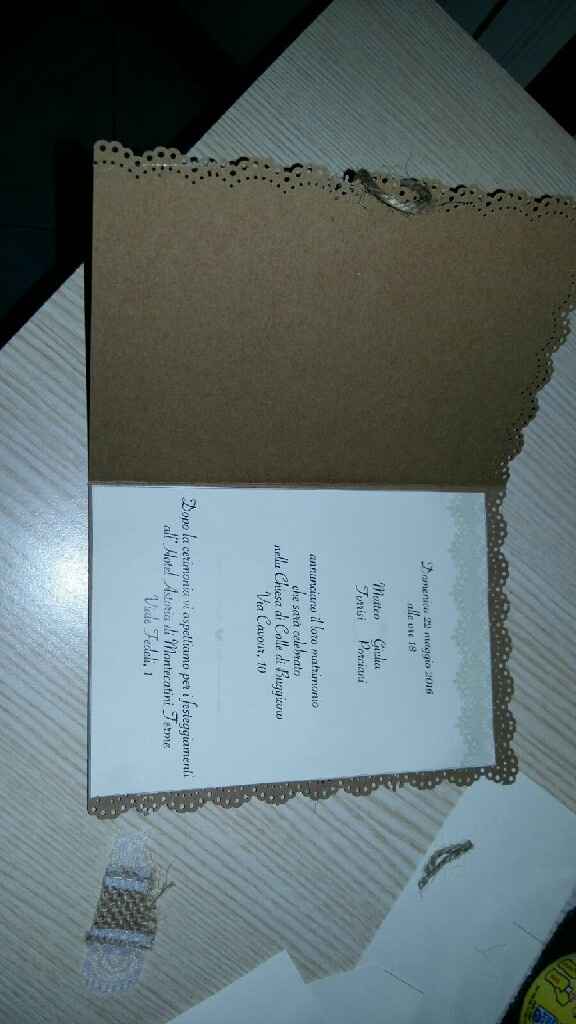 Domenica 22 maggio 2016
alle ore 18
Matteo Giulia
Torrisi Porciani
annunciano il loro matrimonio
che sarà celebrato
nella Chiesa di Colle di Buggiano
Via Cavour, 10
Dopo la cerimonia vi aspettiamo per i festeggiamenti
all'Hotel Astoria di Montecatini Terme
Viale Fedeli, 1